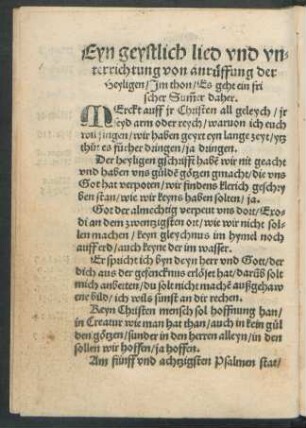 Eyn geystlich lied vnd vn-
terrichtung von anrůffung der
Heyligen / Jm thon / Es geht ein fri
scher Sumer daher.
MErckt auff jr Christen all geleych / jr
seyd arm oder reych / waruon ich euch
wil singen / wir haben geyrt eyn lange zeyt / ytz
thůt es fücher dringen / ja dringen.
Der heyligen gschrifft habē wir nit geacht
vnd haben vns güldē götzen gmacht / die vns
Got hat verpoten / wir findens klerich geschry
ben stan / wie wir keyns haben solten / ja.
Got der almechtig verpeut vns dott / Exo-
di an dem zwentzigsten ort / wie wir nicht sol-
len machen / keyn gleychnus im hymel noch
auff erd / auch keyne der im wasser.
Er spricht ich byn deyn herr vnd Gott / der
dich aus der gefencknus erlöset hat / darůb solt
mich anbeiten / du solt nicht machē außgehaw
ene bild / ich wils sunst an dir rechen.
Keyn Christen mensch sol hoffnung han /
in Creatur wie man hat than / auch in kein gül
den götzen / sunder in den herren alleyn / in den
sollen wir hoffen / ja hoffen.
Am fünff vnd achtzigsten Psalmen stat /